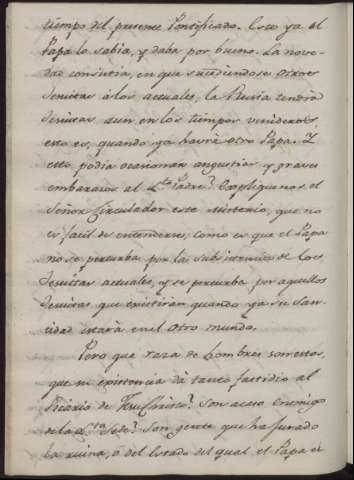 tiempo del presente Pontificado. Esto ya el
Papa lo sabia, y daba por bueno. La nove-
dad consistia, en que sucediendose otros
Jesuitas à los actuales, la Rusia tendrà
Jesuitas aun en los tiempos venideros,
esto es, quando ya havrà otro Papa. Y
esto podia ocasionar angustias, y graves
embarazos al Sto. Padre? Expliquenos el
Señor Circulador este misterio, que no
es facil de entenderse, como es que el Papa
no se perturba por la subsistencia de los
Jesuitas actuales, y se perturba por aquellos
Jesuitas, que existiràn quando ya su San-
tidad estarà en el otro mundo.
Pero que raza de hombres son estos,
que su existencia dà tanto fastidio al
Vicario de Jesu-Christo? Son acaso enemigos
de la Sta. Sede? Son gente que ha jurado
la ruina, ò del Estado del qual el Papa es